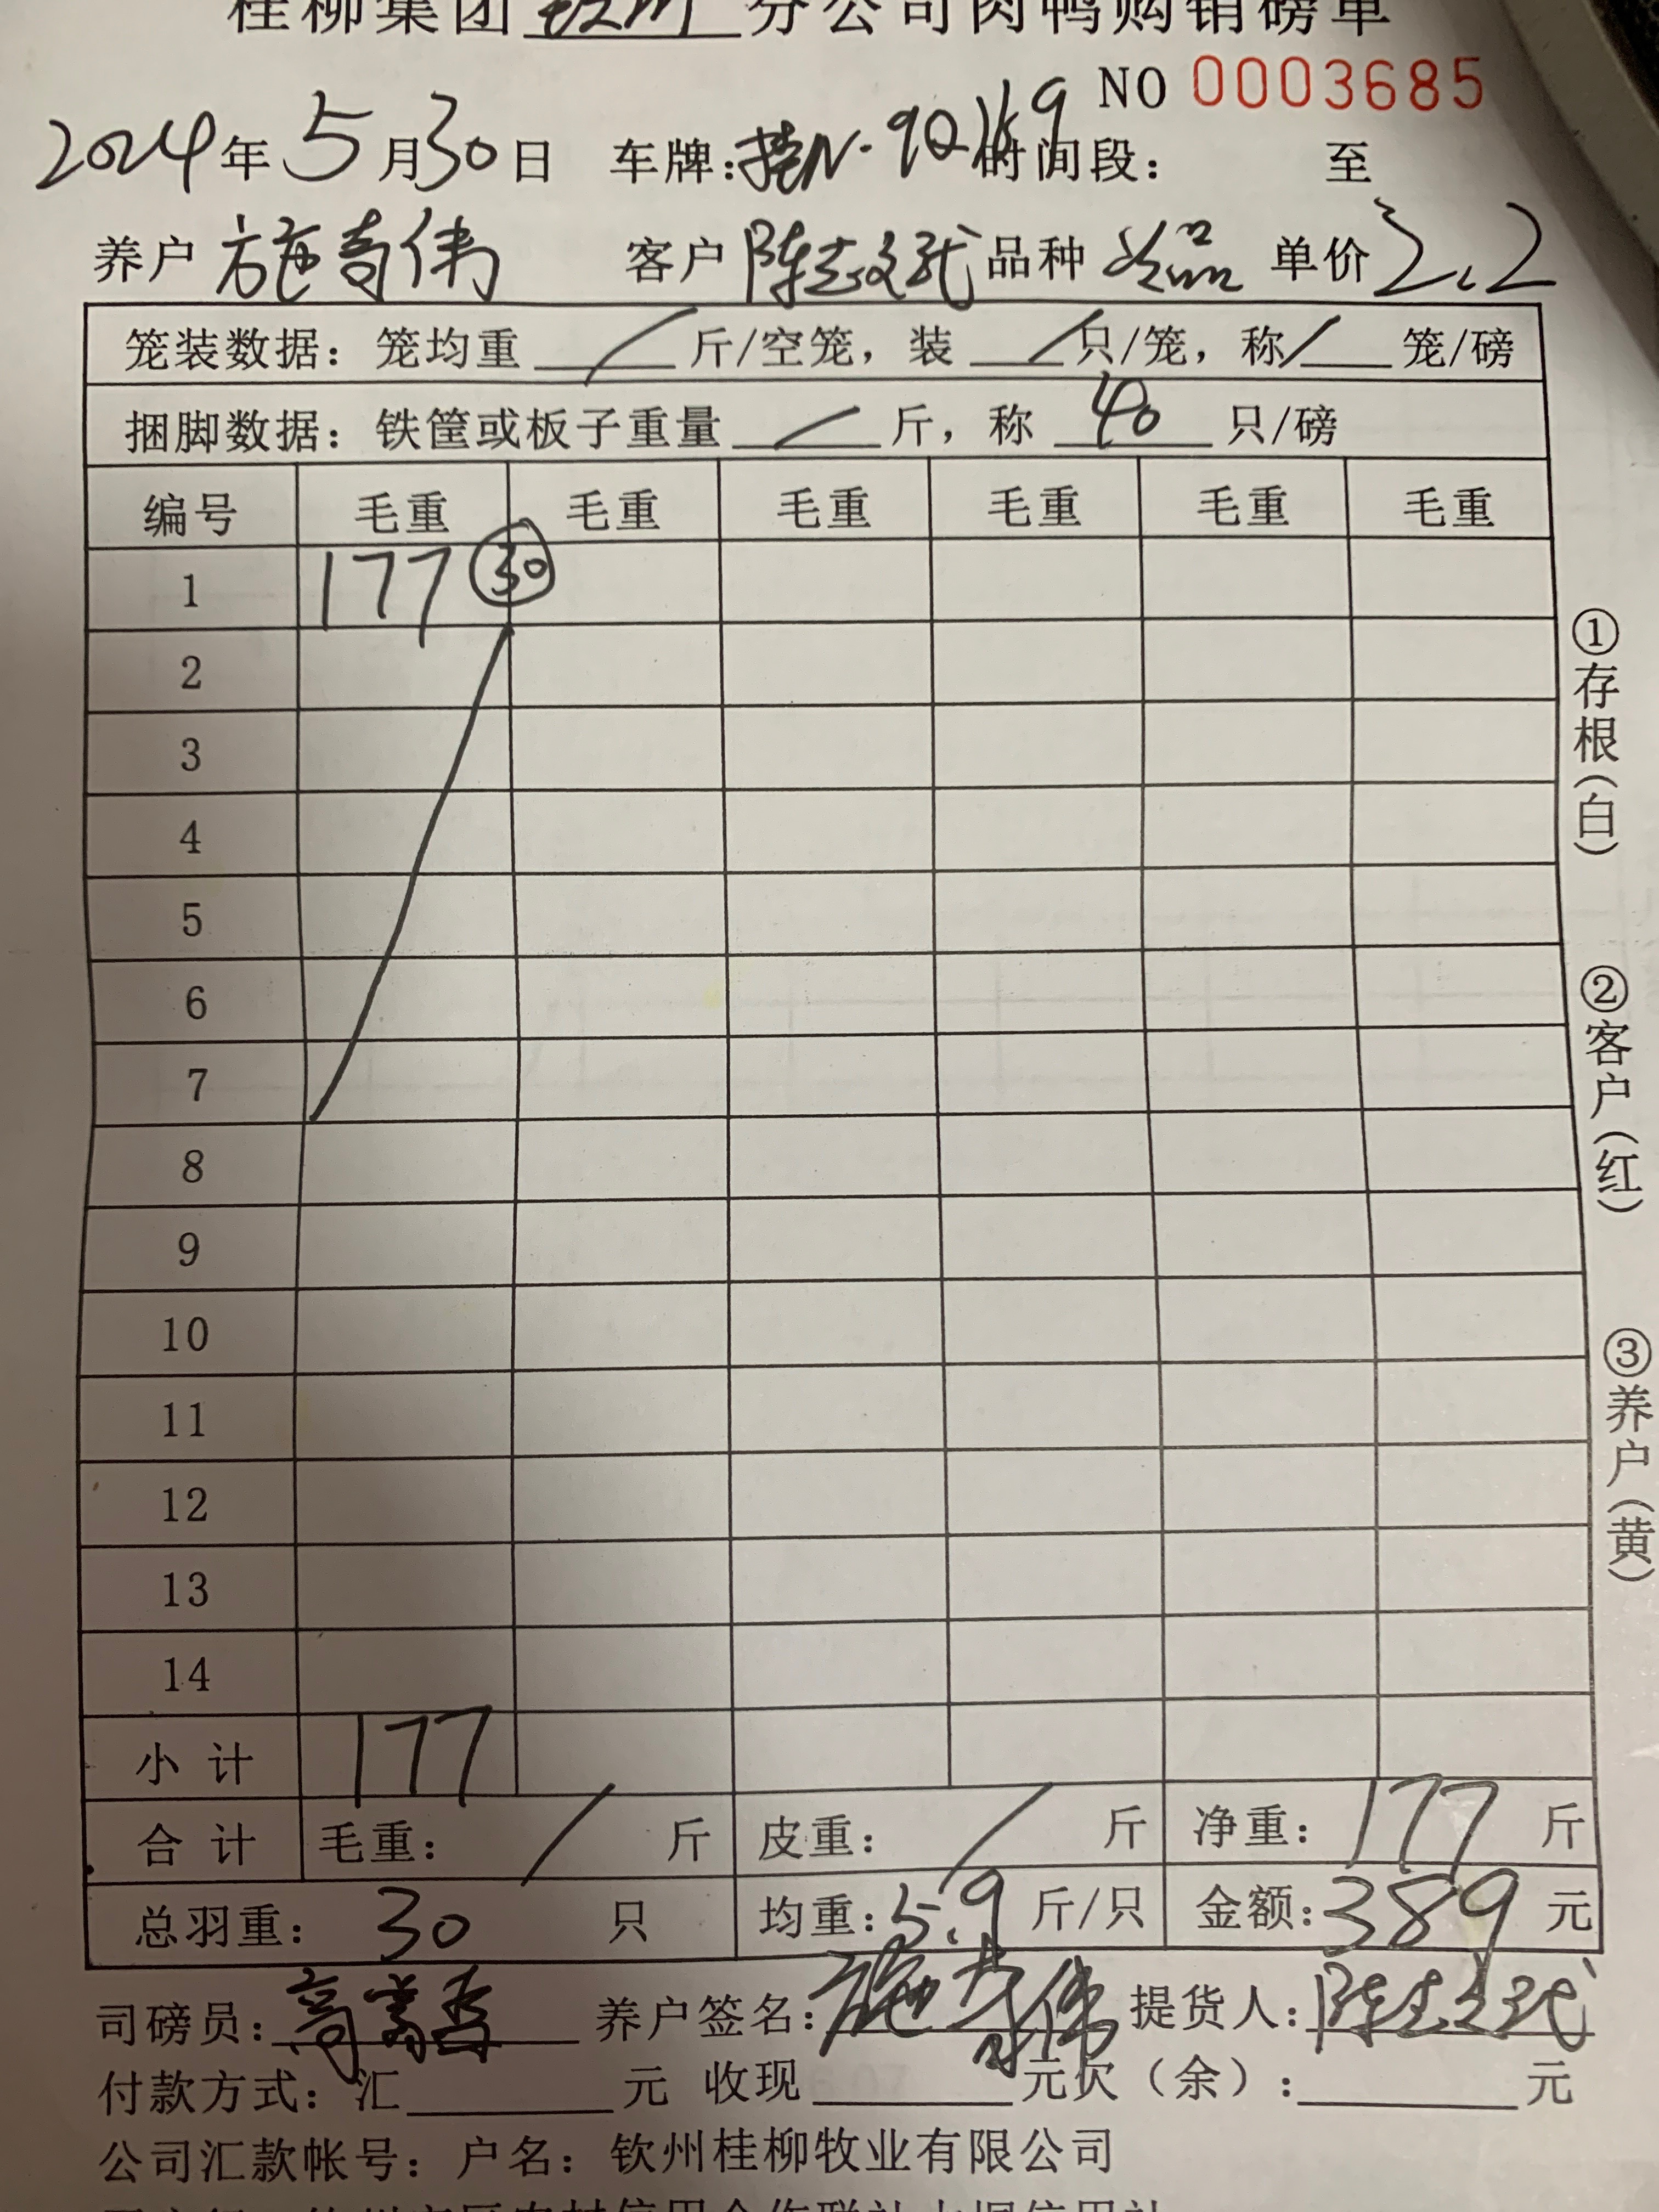 桂柳集团钦州分公司肉鸭购销磅单
NO 0003685
2024年5月30日 车牌:桂N·9Q169 时间段: 至
养户 施奇伟 客户 陈志 品种 次品 单价 2.2
笼装数据: 笼均重 / 斤/空笼, 装 / 只/笼, 称 / 笼/磅
捆脚数据: 铁筐或板子重量 / 斤, 称 40 只/磅
编号 毛重 毛重 毛重 毛重 毛重 毛重
1 177 ㉚
2
3
4
5
6
7
8
9
10
11
12
13
14
小计 177
合计 毛重: / 斤 皮重: / 斤 净重: 177 斤
总羽重: 30 只 均重: 5.9 斤/只 金额: 389 元
司磅员: 高 养户签名: 施奇伟 提货人: 陈志
付款方式: 汇 元 收现 元欠(余): 元
公司汇款帐号: 户名: 钦州桂柳牧业有限公司
①存根(白)
②客户(红)
③养户(黄)